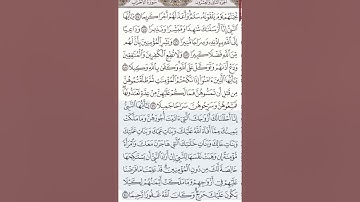 الجزء الثاني والعشرون سورة الأحزاب
تَحِيَّتُهُمْ يَوْمَ يَلْقَوْنَهُۥ سَلَٰمٌ وَأَعَدَّ لَهُمْ أَجْرًا كَرِيمًا ٤٤ يَٰٓأَيُّهَا
ٱلنَّبِيُّ إِنَّآ أَرْسَلْنَٰكَ شَٰهِدًا وَمُبَشِّرًا وَنَذِيرًا ٤٥ وَدَاعِيًا
إِلَى ٱللَّهِ بِإِذْنِهِۦ وَسِرَاجًا مُّنِيرًا ٤٦ وَبَشِّرِ ٱلْمُؤْمِنِينَ بِأَنَّ لَهُم
مِّنَ ٱللَّهِ فَضْلًا كَبِيرًا ٤٧ وَلَا تُطِعِ ٱلْكَٰفِرِينَ وَٱلْمُنَٰفِقِينَ
وَدَعْ أَذَىٰهُمْ وَتَوَكَّلْ عَلَى ٱللَّهِ وَكَفَىٰ بِٱللَّهِ وَكِيلًا ٤٨ يَٰٓأَيُّهَا
ٱلَّذِينَ ءَامَنُوٓا۟ إِذَا نَكَحْتُمُ ٱلْمُؤْمِنَٰتِ ثُمَّ طَلَّقْتُمُوهُنَّ مِن
قَبْلِ أَن تَمَسُّوهُنَّ فَمَا لَكُمْ عَلَيْهِنَّ مِنْ عِدَّةٍ تَعْتَدُّونَهَا
فَمَتِّعُوهُنَّ وَسَرِّحُوهُنَّ سَرَاحًا جَمِيلًا ٤٩ يَٰٓأَيُّهَا ٱلنَّبِيُّ
إِنَّآ أَحْلَلْنَا لَكَ أَزْوَٰجَكَ ٱلَّٰتِيٓ ءَاتَيْتَ أُجُورَهُنَّ وَمَا مَلَكَتْ
يَمِينُكَ مِمَّآ أَفَآءَ ٱللَّهُ عَلَيْكَ وَبَنَاتِ عَمِّكَ وَبَنَاتِ عَمَّٰتِكَ
وَبَنَاتِ خَالِكَ وَبَنَاتِ خَٰلَٰتِكَ ٱلَّٰتِي هَاجَرْنَ مَعَكَ وَٱمْرَأَةً
مُّؤْمِنَةً إِن وَهَبَتْ نَفْسَهَا لِلنَّبِيِّ إِنْ أَرَادَ ٱلنَّبِيُّ أَن يَسْتَنكِحَهَا
خَالِصَةً لَّكَ مِن دُونِ ٱلْمُؤْمِنِينَ قَدْ عَلِمْنَا مَا فَرَضْنَا
عَلَيْهِمْ فِيٓ أَزْوَٰجِهِمْ وَمَا مَلَكَتْ أَيْمَٰنُهُمْ لِكَيْلَا
يَكُونَ عَلَيْكَ حَرَجٌ وَكَانَ ٱللَّهُ غَفُورًا رَّحِيمًا ٥٠